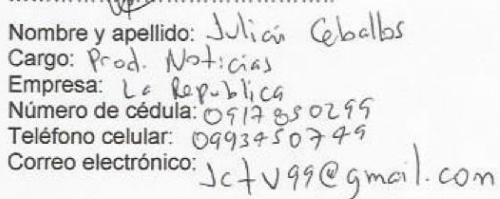 Nombre y apellido: Julián Ceballos
Cargo: Prod. Noticias
Empresa: La República
Número de cédula: 0917850299
Teléfono celular: 0993450749
Correo electrónico: Jctv99@gmail.com